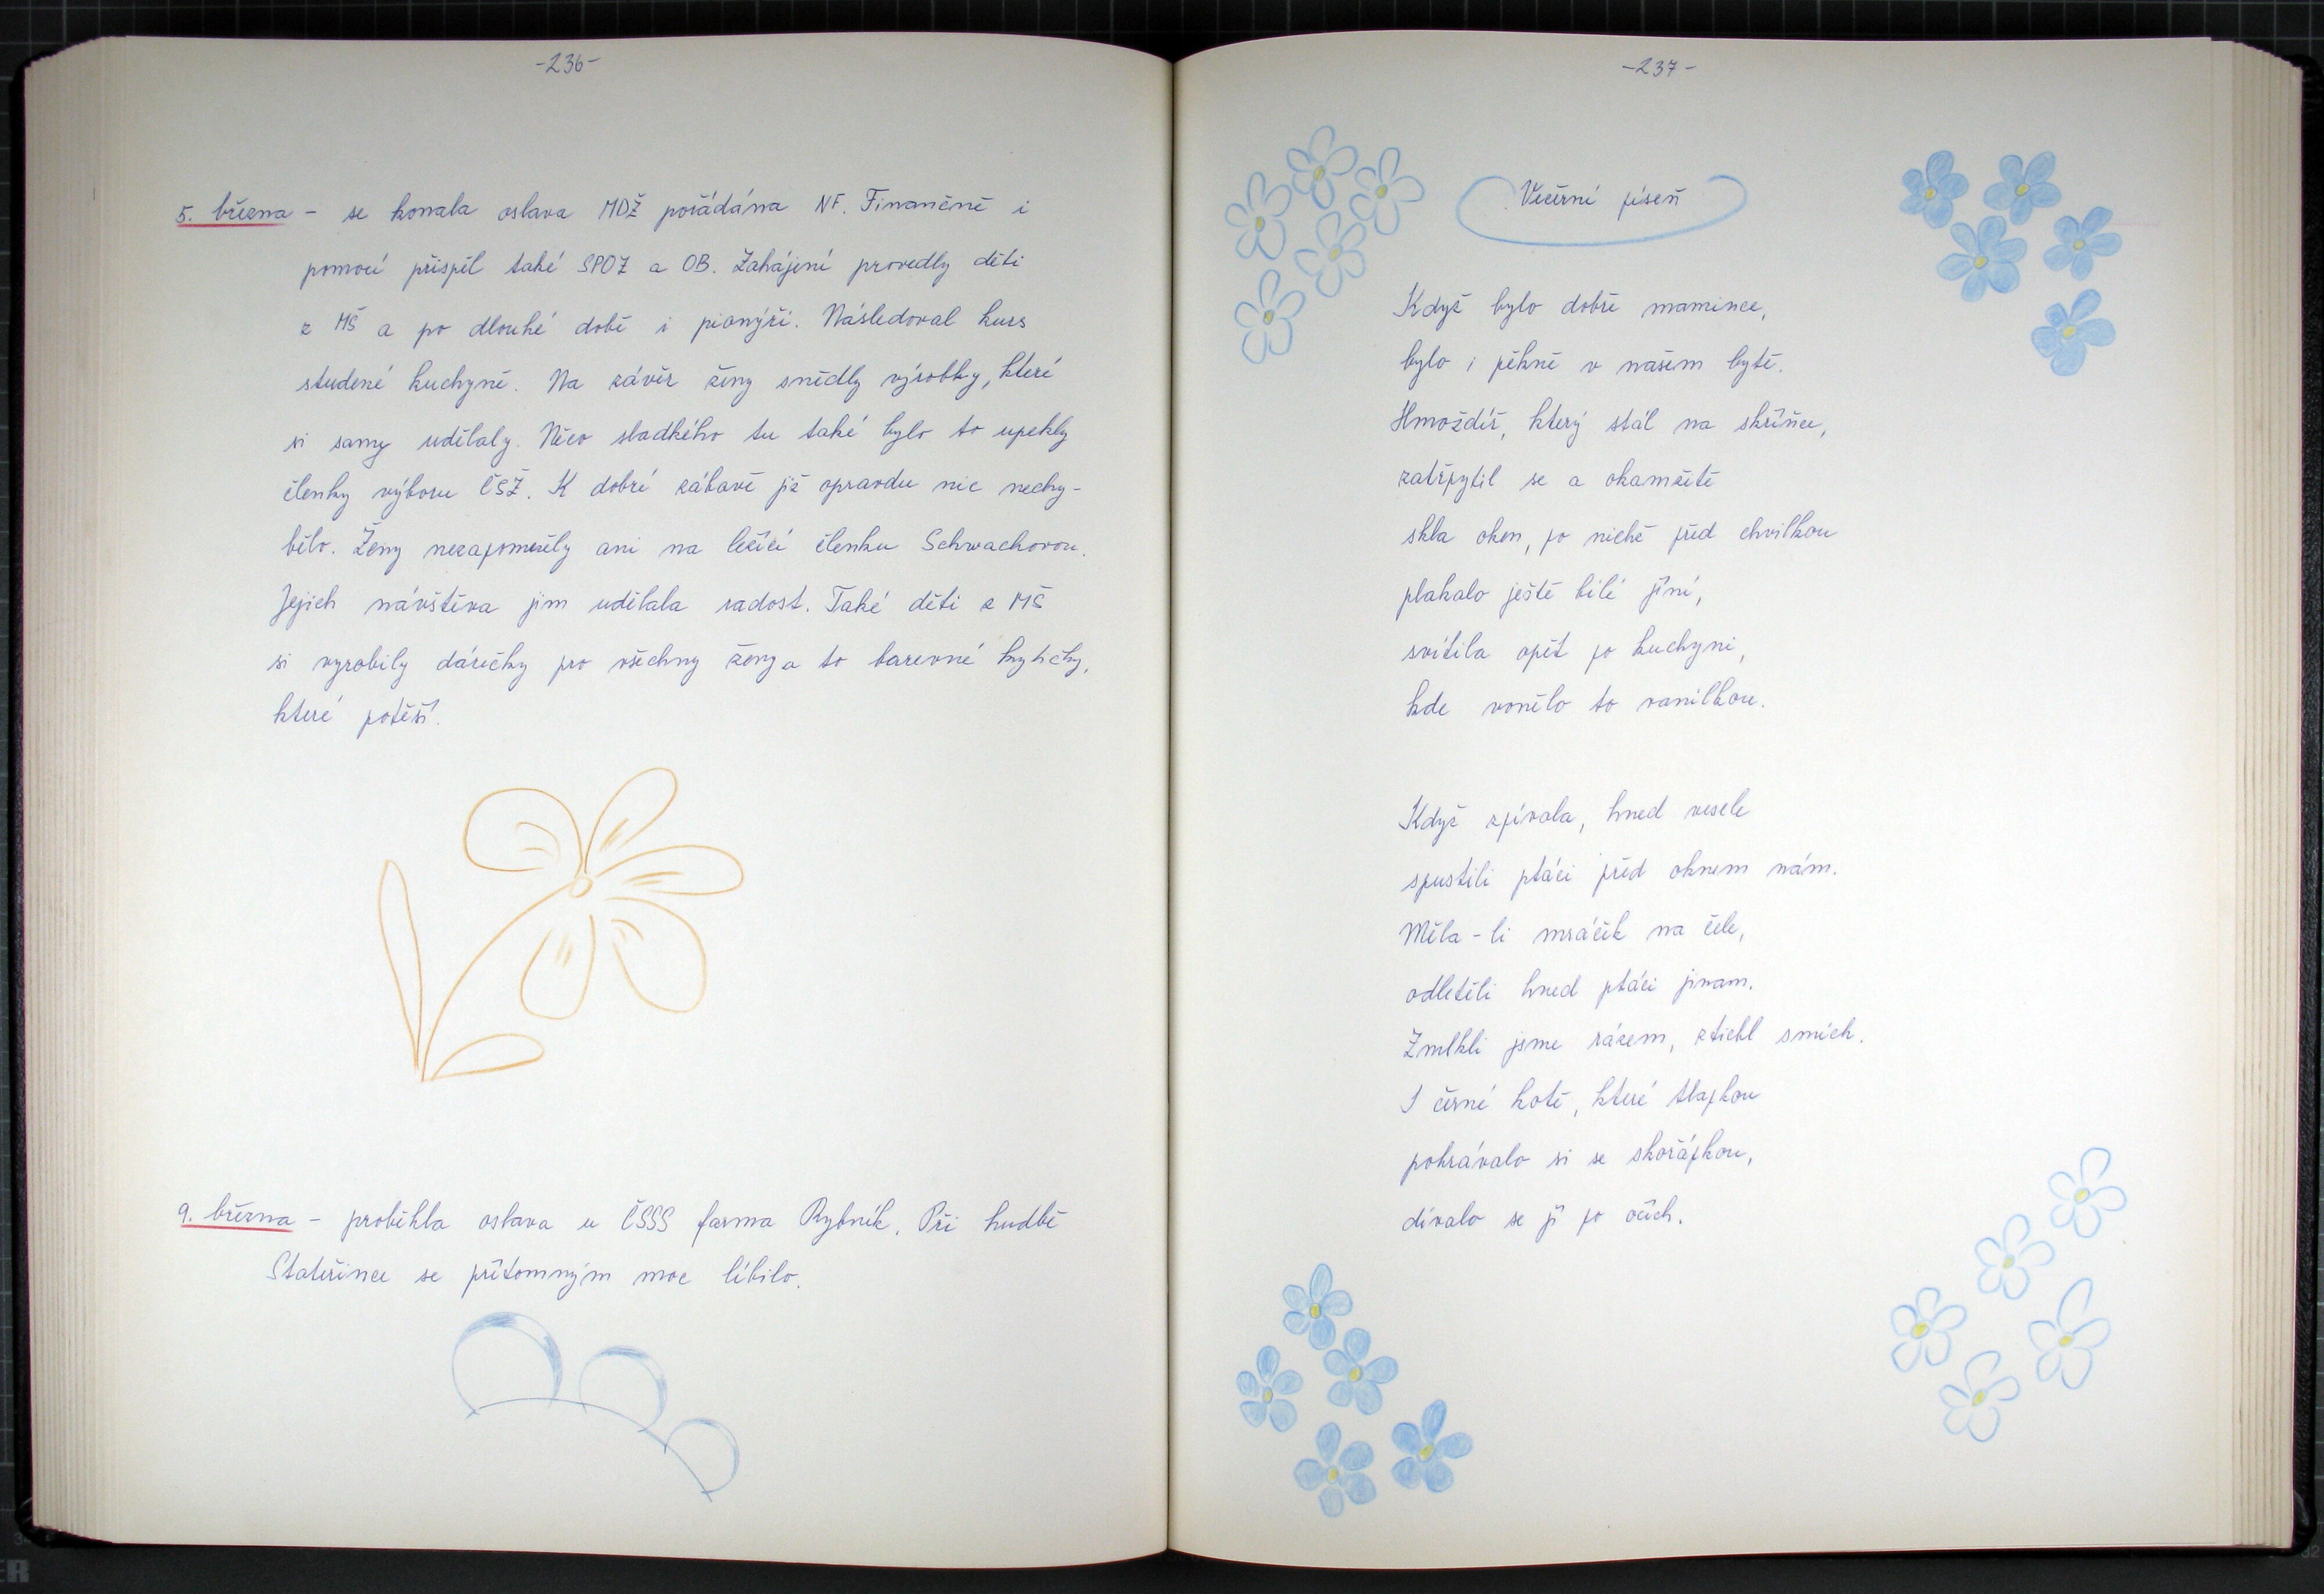 -236-
5. března - se konala oslava MDŽ pořádána NF. Finančně i
pomocí přispěl také SPOZ a OB. Zahájení provedly děti
z MŠ a po dlouhé době i pionýři. Následoval kurs
studené kuchyně. Na závěr ženy snědly výrobky, které
si samy udělaly. Něco sladkého tu také bylo to upekly
členky výboru ČSŽ. K dobré zábavě již opravdu nic nechy-
bělo. Ženy nezapomněly ani na ležící členku Schwachovou.
Jejich návštěva jim udělala radost. Také děti z MŠ
si vyrobily dárečky pro všechny ženy a to barevné kytičky,
které potěší.
9. března - proběhla oslava u ČSSS farma Rybník. Při hudbě
Stateřince se přítomným moc líbilo.
-237-
Večerní píseň
Když bylo dobře mamince,
bylo i pěkně v našem bytě.
Hmoždíř, který stál na skřínce,
zatřpytil se a okamžitě
skla oken, po nichž před chvilkou
plakalo ještě bílé jíní,
svítila opět po kuchyni,
kde vonělo to vanilkou.
Když zpívala, hned vesele
spustili ptáci před oknem nám.
Měla-li mráček na čele,
odletěli hned ptáci jinam.
Zmlkli jsme rázem, ztichl smích.
I černé kotě, které tlapkou
pohrávalo si se skořápkou,
dívalo se jí po očích.